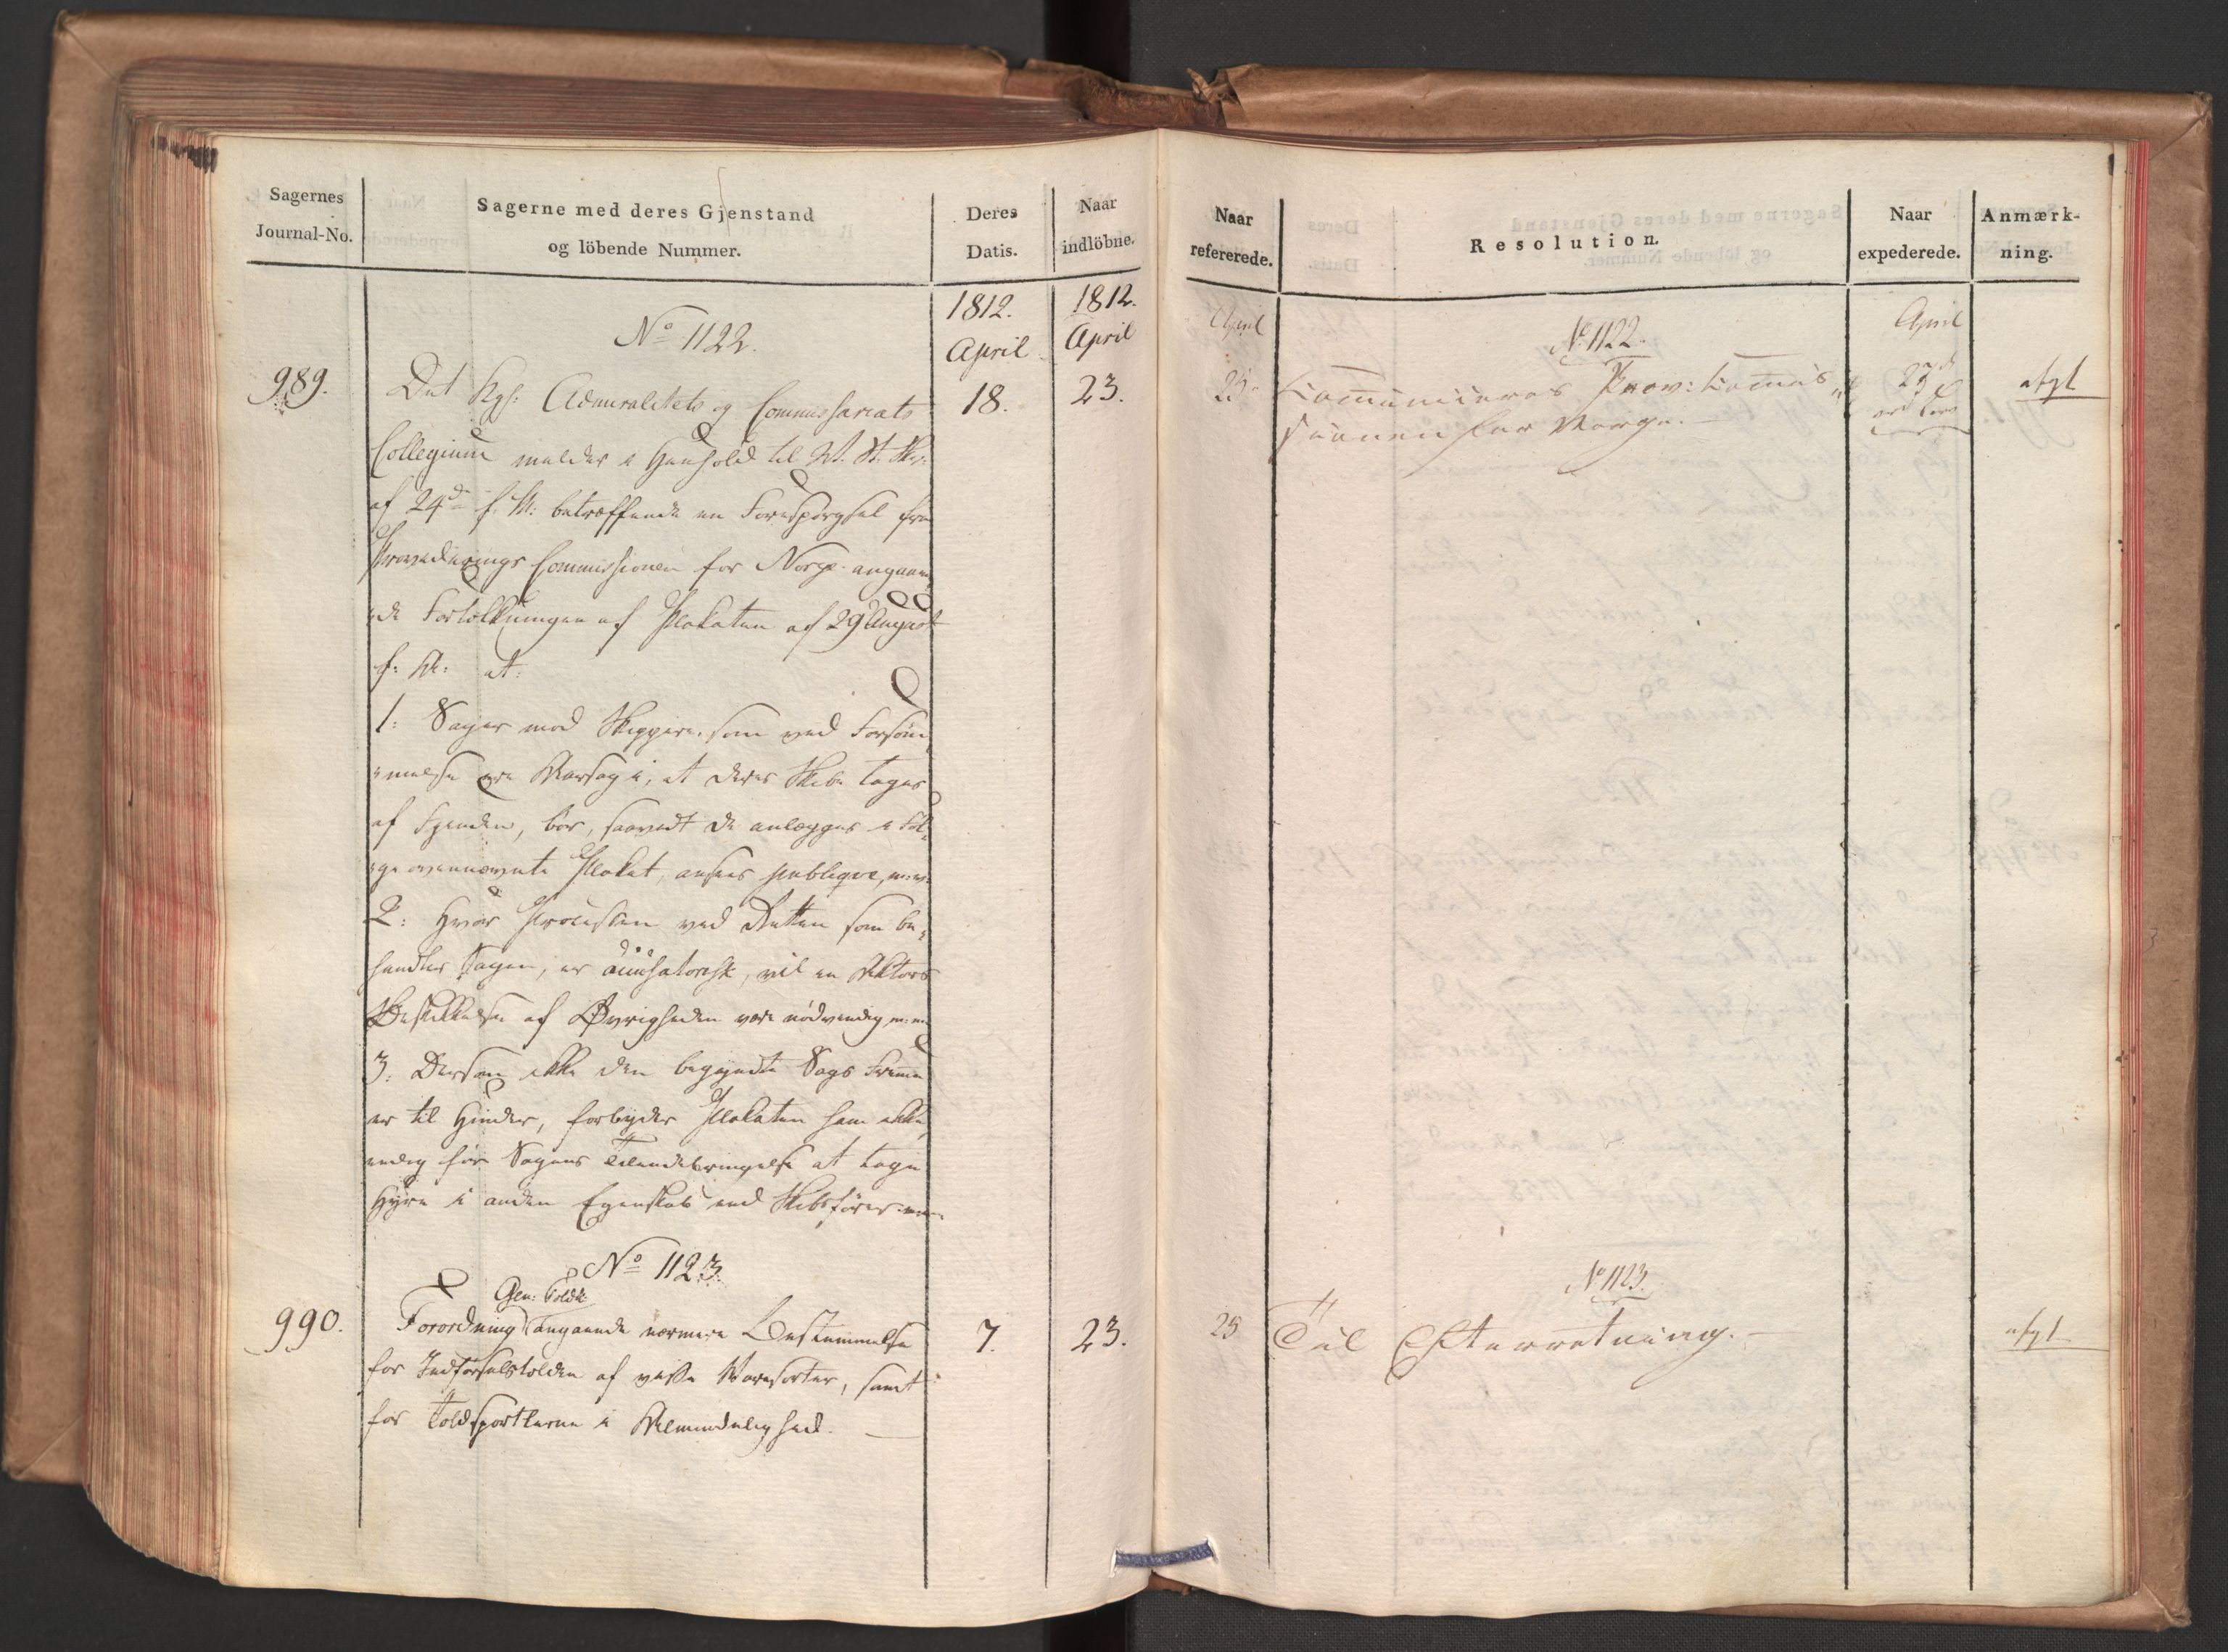 Sagernes
Journal-No.
Sagerne med deres Gjenstand
og löbende Nummer.
Deres
Datis.
Naar
indlöbne.
1812.
April
1812.
April
No 1122.
989.
18.
23.
Det Kgl: Admiralitets og Commissariats
Collegium melder i Henhold til
af 24de f. M: betræffende en Forespörgsel fra
Provederings Commissionen for Norge angaaen¬
de Fortolkningen af Plakaten af 29 August
f: A: at:
1: Sager mod Skippere, som ved Forsöm¬
melse ere Aarsag i, at deres Skibe tages
af Fjenden, bör, saavidt de anlægges iFöl¬
ge ovennævnte Plakat, ansees publiqve, m: v:
2: Hvor Processen ved Retten som be¬
handler Sagen, er accusatorisk, vil en Aktors
Beskikkelse af Øvrigheden være nödvendig m: m:
3: Dersom ikke den begyndte Sags Fremme
er til Hinder, forbyder Plakaten ham ikke
endog för Sagens Tilendebringelse at tage
Hyre i anden Egenskab end Skibsförer
No 1123.
Gen: Toldk:
990.
Forordning angaaende nærmere Bestemmelse
for Indförselstolden af visse Varesorter, samt
for Toldsportlerne i Almindelighed.
7.
23.
Naar
refererede.
Resolution.
Naar
expederede.
Anmærk-
ning.
April
April
No 1122.
25
Communiceres Prov: Commis¬
sionen for Norge.
23
afgl
No 1123.
25
Til Efterretning.
afgl